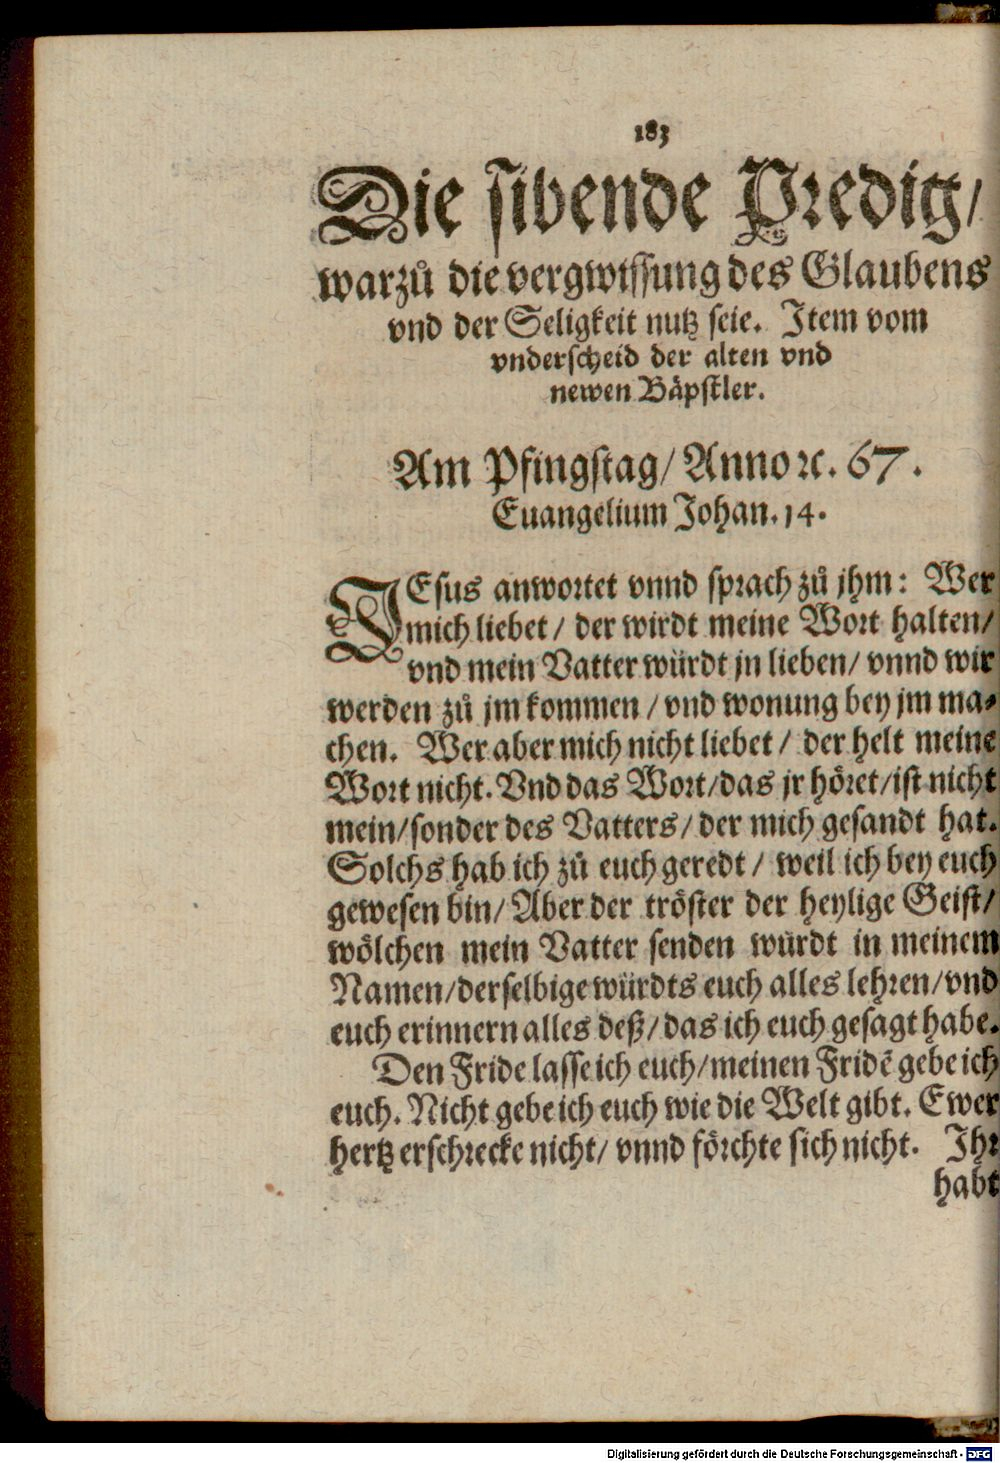 183
Die sibende Predig/
warzů die vergwissung des Glaubens
vnd der Seligkeit nutz seie. Item vom
vnderscheid der alten vnd
newen Bäpstler.
Am Pfingstag/ Anno ꝛc. 67.
Euangelium Johan. 14.
JEsus anwortet vnnd sprach zů jhm: Wer
mich liebet/ der wirdt meine Wort halten/
vnd mein Vatter würdt jn lieben/ vnnd wir
werden zů jm kommen/ vnd wonung bey jm ma⸗
chen. Wer aber mich nicht liebet/ der helt meine
Wort nicht. Vnd das Wort/ das jr höret/ ist nicht
mein/ sonder des Vatters/ der mich gesandt hat.
Solchs hab ich zů euch geredt/ weil ich bey euch
gewesen bin/ Aber der tröster der heylige Geist/
wölchen mein Vatter senden würdt in meinem
Namen/ derselbige würdts euch alles lehren/ vnd
euch erinnern alles deß/ das ich euch gesagt habe.
Den Fride lasse ich euch/ meinen Fridẽ gebe ich
euch. Nicht gebe ich euch wie die Welt gibt. Ewer
hertz erschrecke nicht/ vnnd förchte sich nicht. Ihr
habt
Digitalisierung gefördert durch die Deutsche Forschungsgemeinschaft - DFG